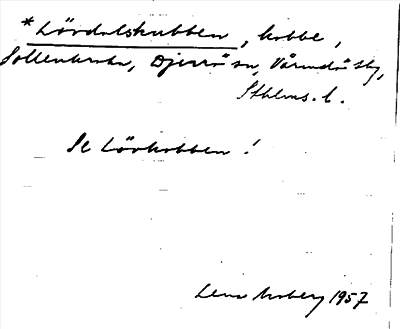 *Lövdalskubben, kobbe,
Sollenkroka, Djurö sn, Värmdö skg,
Sthlms. l.
Se Lövkobben!
Lena Moberg 1957